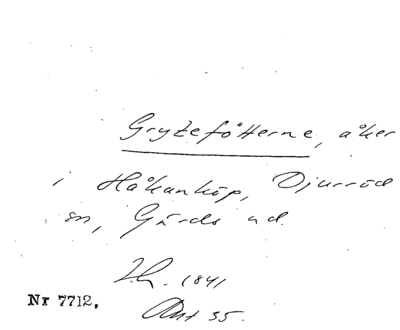 Grytefötterne, åker
i Håkanköp, Djurröd
sn, Gärds hd.
1841
Akt 35.
Nr 7712.